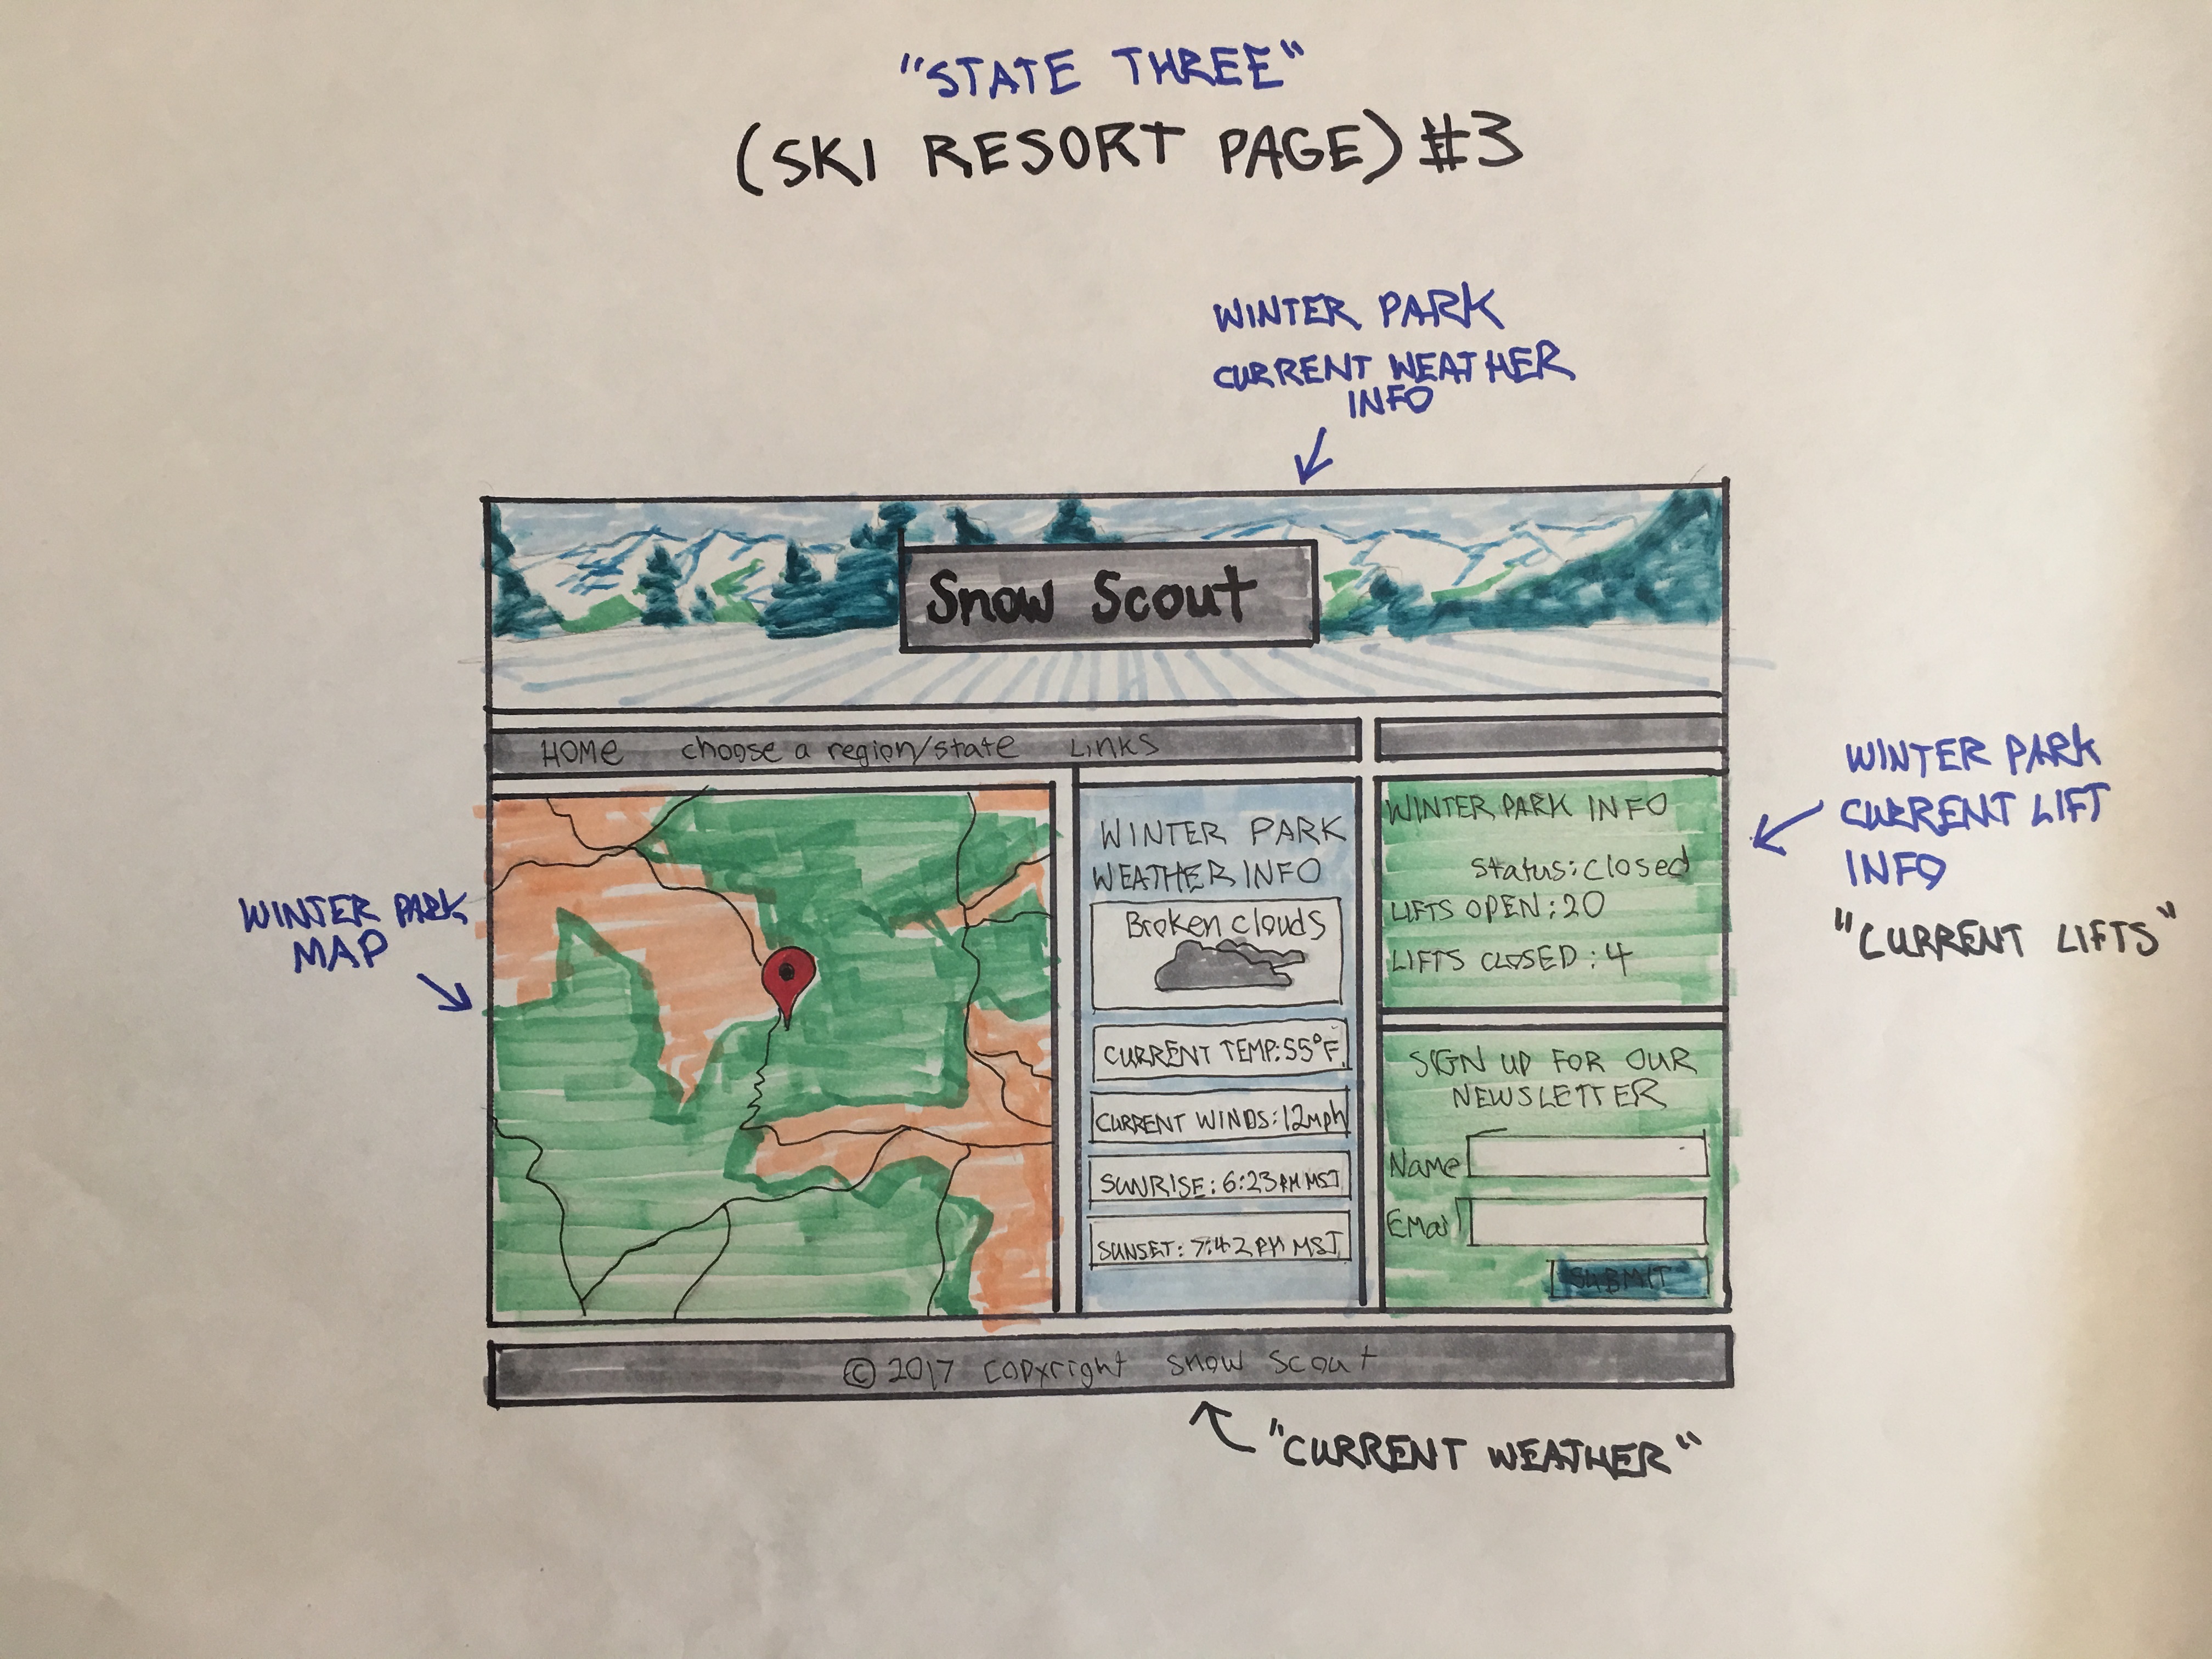 "STATE THREE"
(SKI RESORT PAGE) #3
WINTER PARK
CURRENT WEATHER
INFO
Snow Scout
HOME choose a region/state LINKS
WINTER PARK
MAP
WINTER PARK
WEATHER INFO
Broken clouds
CURRENT TEMP: 55°F
CURRENT WINDS: 12mph
SUNRISE: 6:23 PM MST
SUNSET: 7:42 PM MST
WINTER PARK INFO
Status: closed
LIFTS OPEN: 20
LIFTS CLOSED: 4
SIGN UP FOR OUR
NEWSLETTER
Name
EMail
SUBMIT
WINTER PARK
CURRENT LIFT
INFO
"CURRENT LIFTS"
© 2017 copyright snow scout
"CURRENT WEATHER"